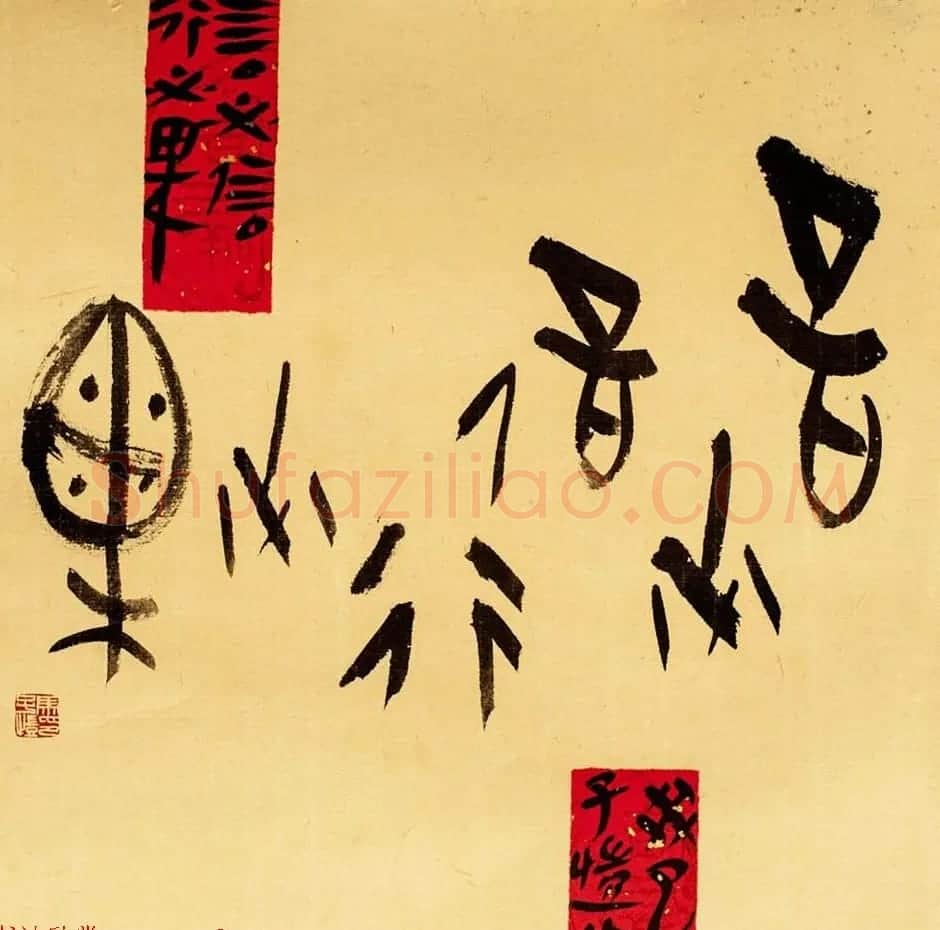 言必
信行
必果
言必信
行必果
癸卯
Shufaziliao.COM